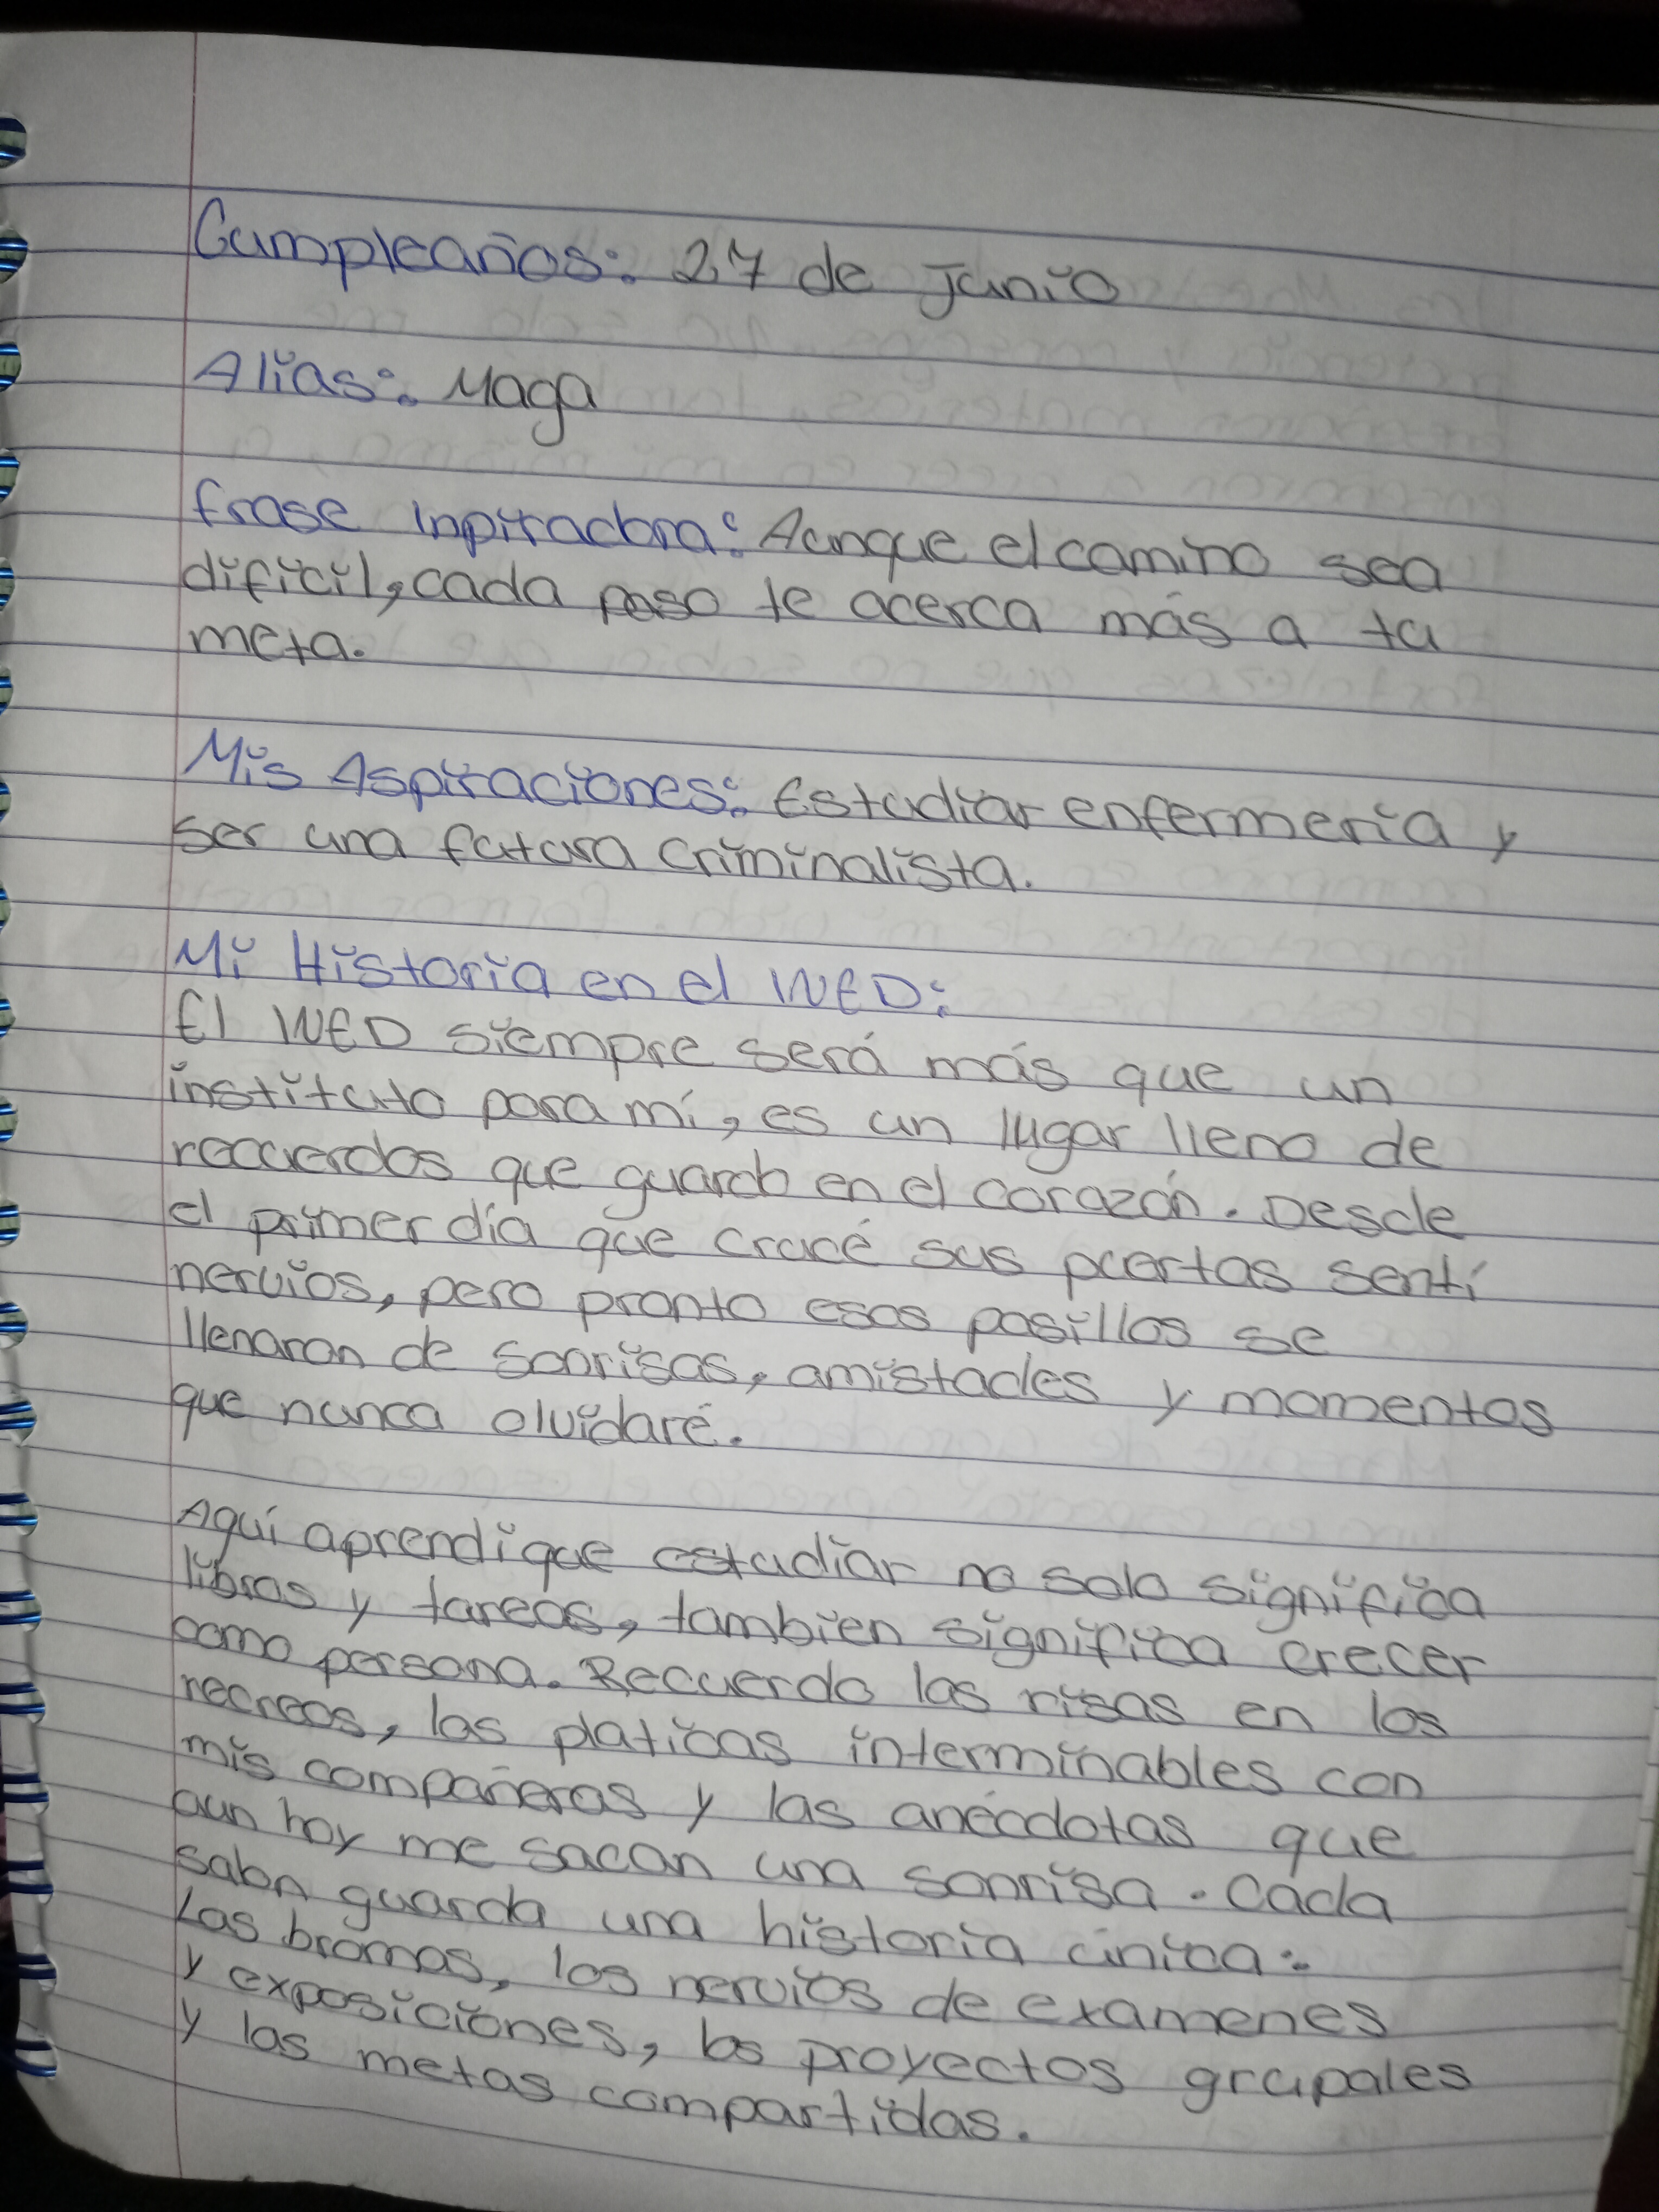 Cumpleaños: 27 de Junio
Alias: Maga
frase inpiradora: Aunque el camino sea
dificil, cada paso te acerca más a tu
meta.
Mis Aspiraciones: Estudiar enfermería y
ser una futura criminalista.
Mi Historia en el WED:
El WED siempre será más que un
instituto para mí, es un lugar lleno de
recuerdos que guardo en el corazón. Desde
el primer día que crucé sus puertas sentí
nervios, pero pronto esos pasillos se
llenaron de sonrisas, amistades y momentos
que nunca olvidaré.
Aquí aprendi que estudiar no solo significa
libros y tareas, tambien significa crecer
como persona. Recuerdo las risas en los
recreos, las platicas interminables con
mis compañeros y las anécdotas que
aun hoy me sacan una sonrisa. Cada
salon guarda una historia única:
Las bromas, los nervios de examenes
y exposiciones, los proyectos grupales
y las metas compartidas.